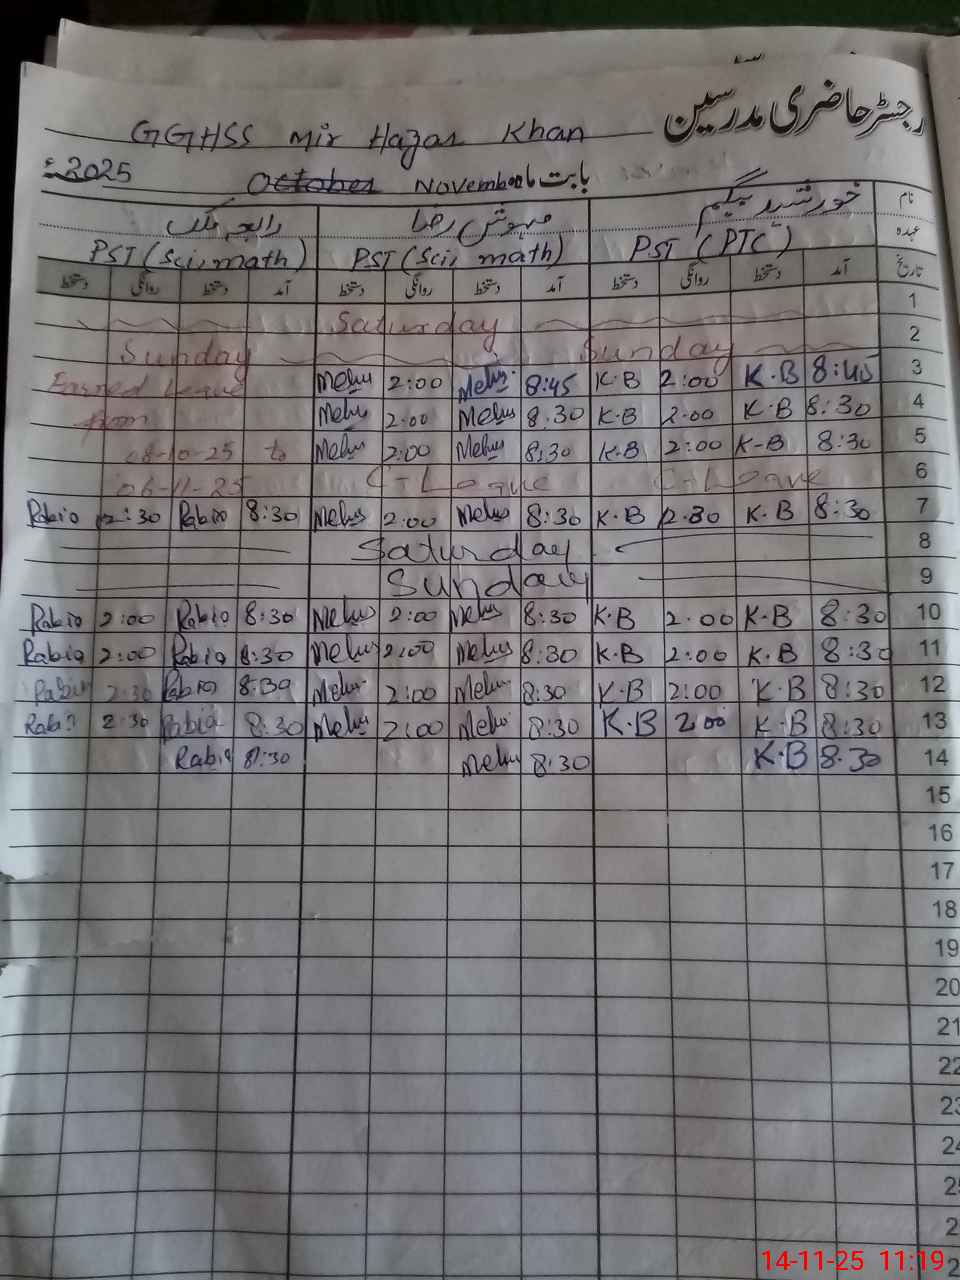 رجسٹر حاضری مدرسین
GGHSS Mir Hazar Khan
بابت ماہ October November 2025ء
نام خورشید بیگم مہوش رضا رابعہ ملک
عہدہ PST (PTC) PST (Sci, math) PST (Sci, math)
تاریخ آمد دستخط روانگی دستخط آمد دستخط روانگی دستخط آمد دستخط روانگی دستخط
1 Saturday
2 Sunday Sunday
Earned Leave Mehu 2:00 Mehu 8:45 K.B 2:00 K.B 8:45 3
from Mehu 2:00 Mehu 8.30 K.B 2:00 K.B 8:30 4
08-10-25 to Mehu 2:00 Mehu 8:30 K.B 2:00 K-B 8:30 5
06-11-25 C-Leave C-Leave 6
Rabia 12:30 Rabia 8:30 Mehu 2:00 Mehu 8:30 K.B 12.30 K.B 8:30 7
Saturday 8
Sunday 9
Rabia 2:00 Rabia 8:30 Mehu 2:00 Mehu 8:30 K.B 2.00 K.B 8:30 10
Rabia 2:00 Rabia 8:30 Mehu 2:00 Mehu 8:30 K.B 2:00 K.B 8:30 11
Rabia 2:30 Rabia 8:30 Mehu 2:00 Mehu 8:30 K.B 2:00 K.B 8:30 12
Rabia 2:30 Rabia 8:30 Mehu 2:00 Mehu 8:30 K.B 2:00 K.B 8:30 13
Rabia 8:30 Mehu 8:30 K.B 8.30 14
15
16
17
18
19
20
21
22
23
24
14-11-25 11:19